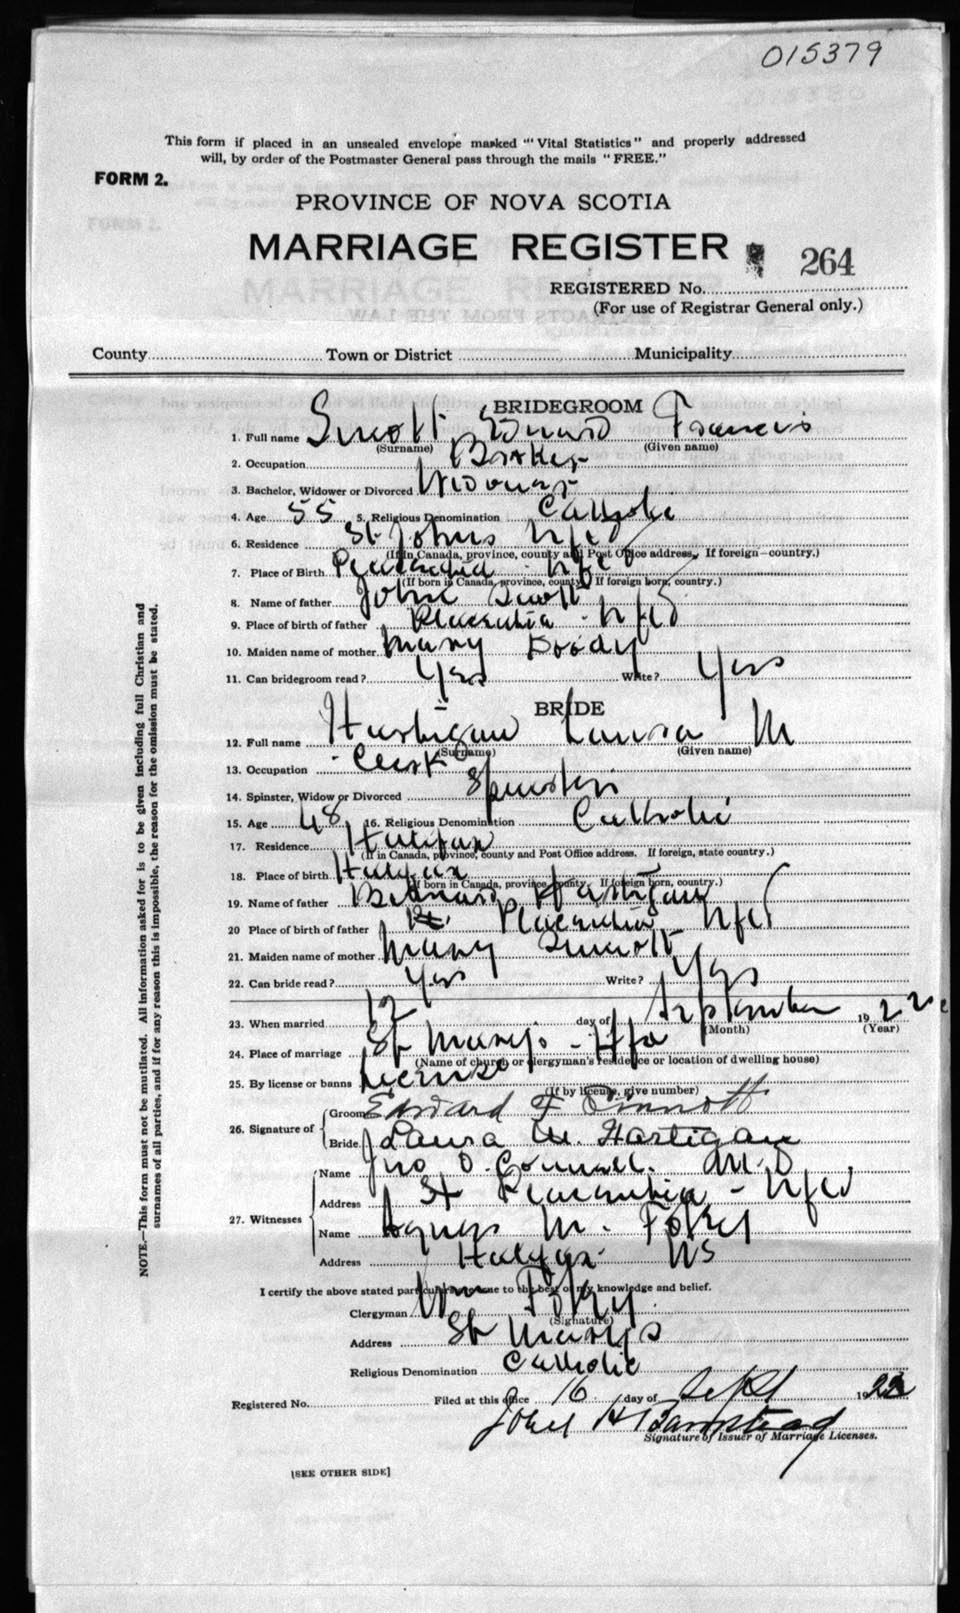 015379
This form if placed in an unsealed envelope marked "Vital Statistics" and properly addressed
will, by order of the Postmaster General pass through the mails "FREE."
FORM 2.
PROVINCE OF NOVA SCOTIA
MARRIAGE REGISTER 264
REGISTERED No.
(For use of Registrar General only.)
County Town or District Municipality
BRIDEGROOM
1. Full name Sinnott Edward Francis
(Surname) (Given name)
2. Occupation
3. Bachelor, Widower or Divorced Widower
4. Age 55 5. Religious Denomination Catholic
6. Residence St Johns Nfld
(If in Canada, province, county and Post Office address, If foreign—country.)
7. Place of Birth Placentia - Nfld
(If born in Canada, province, county, If foreign born, country.)
8. Name of father John Sinnott
9. Place of birth of father Placentia - Nfld
10. Maiden name of mother Mary Doody
11. Can bridegroom read? Yes Write? Yes
BRIDE
12. Full name Hartigan Laura M
(Surname) (Given name)
13. Occupation Clerk
14. Spinster, Widow or Divorced Spinster
15. Age 48 16. Religious Denomination Catholic
17. Residence Halifax
(If in Canada, province, county and Post Office address. If foreign, state country.)
18. Place of birth Halifax
(If born in Canada, province, county. If foreign born, country.)
19. Name of father Bernard Hartigan
20 Place of birth of father Placentia Nfld
21. Maiden name of mother Mary Sinnott
22. Can bride read? Yes Write? Yes
23. When married 12 day of September 1922
(Month) (Year)
24. Place of marriage St Marys - Hfx
(Name of church or clergyman's residence or location of dwelling house)
25. By license or banns License
(If by license, give number)
26. Signature of Groom Edward F Sinnott
Bride Laura M. Hartigan
27. Witnesses Name Jno O'Connell. M.D
Address Placentia - Nfld
Name Agnes M. Foley
Address Halifax NS
I certify the above stated particulars are true to the best of my knowledge and belief.
Clergyman Wm Foley
(Signature)
Address St Marys
Religious Denomination Catholic
Registered No. Filed at this office 16 day of Sept 1922
John H Barnstead
Signature of Issuer of Marriage Licenses.
[SEE OTHER SIDE]
NOTE.—This form must not be mutilated. All information asked for is to be given including full Christian and
surnames of all parties, and if for any reason this is impossible, the reason for the omission must be stated.